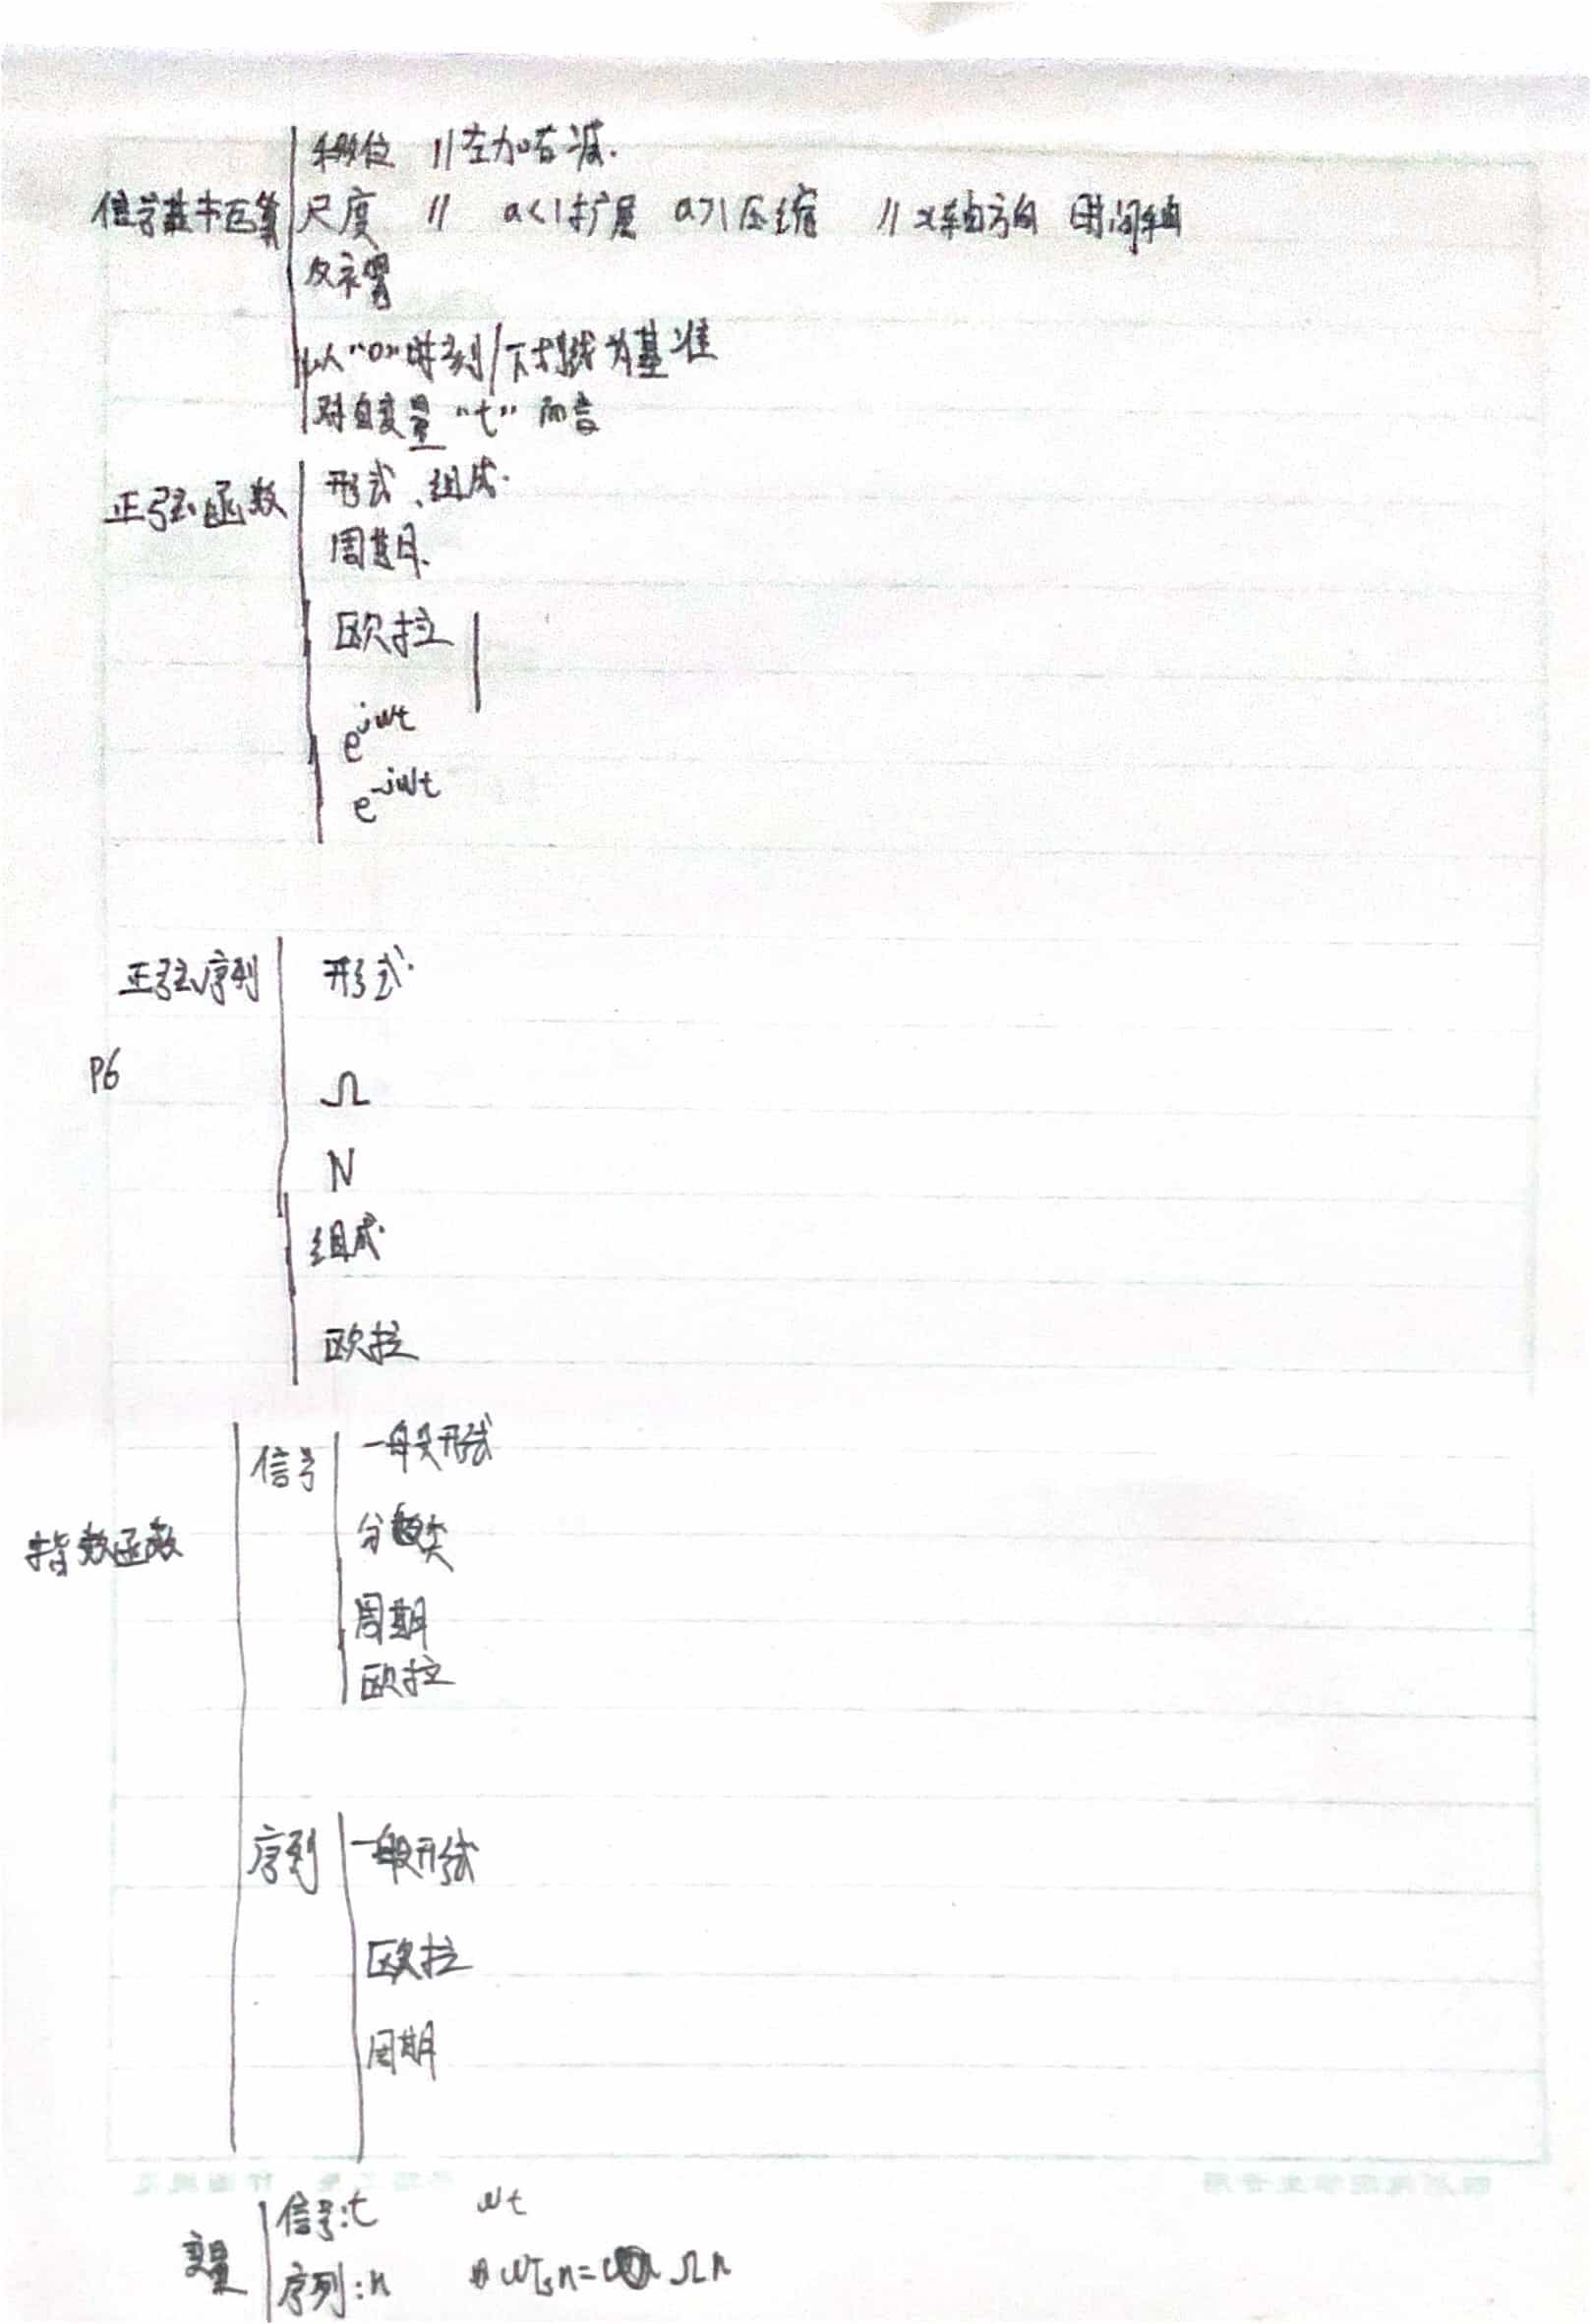 移位 // 左加右减.
信号基本运算 尺度 // a<1扩展 a>1压缩 // x轴方向 时间轴
反褶
以"0"时刻/下划线为基准
对自变量"t"而言
正弦函数 形式、组成.
周期.
欧拉
e^jωt
e^-jωt
正弦序列 形式.
P6
Ω
N
组成
欧拉
信号 一般形式
指数函数 分类
周期
欧拉
序列 一般形式
欧拉
周期
变量 信号:t ωt
序列:n ωTsn= Ωn